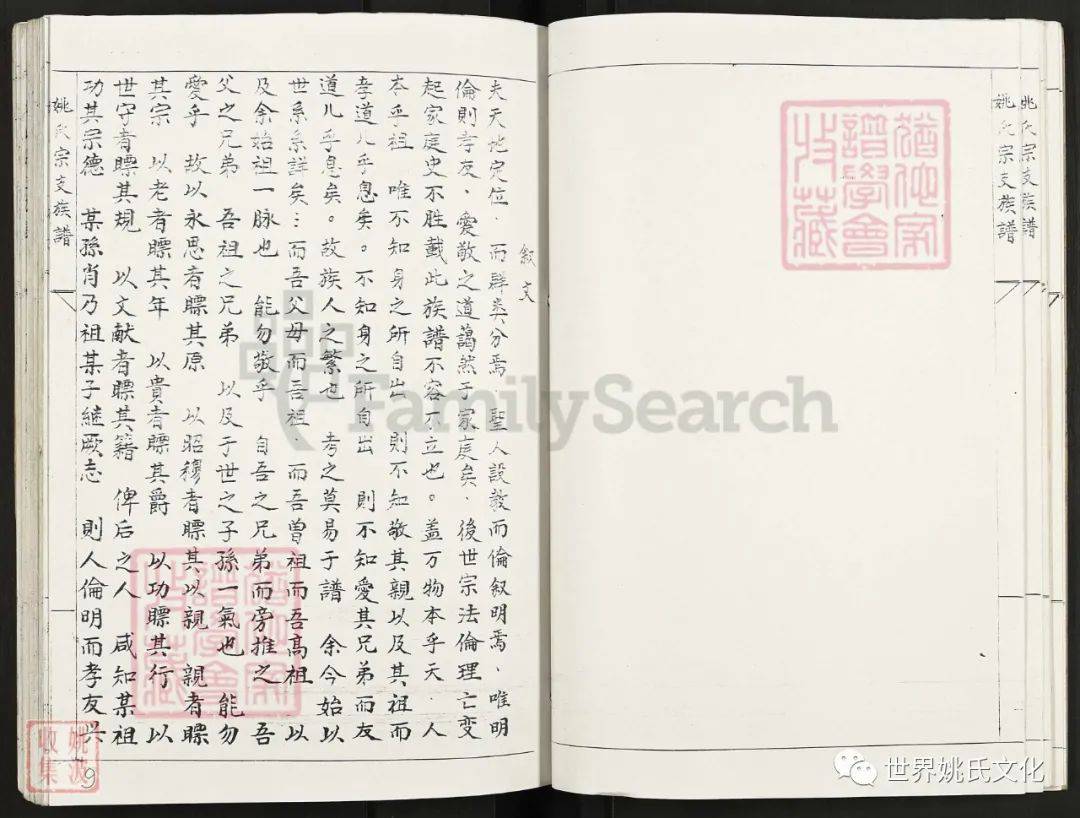 姚氏宗支族譜
姚氏宗支族譜
猶他家
譜學會
收藏
叙文
夫天地定位．而群类分焉．聖人設教而倫叙明焉．唯明
倫則孝友．愛敬之道藹然于家庭矣．後世宗法倫理亡变
起家庭史不胜載此族譜不容不立也。盖万物本乎天．人
本乎祖　唯不知身之所自出　則不知敬其親以及其祖而
孝道几乎息矣。不知身之所自出　則不知愛其兄弟而友
道几乎息矣。故族人之繁也　考之莫易于譜　余今始以
世系系詳矣…而吾父母而吾祖．而吾曾祖而吾高祖　以
及余始祖一脉也　能勿敬乎　自吾之兄弟而旁推之　吾
父之兄弟　吾祖之兄弟　以及于世之子孫一氣也　能勿
愛乎　故以永思者瞟其原　以昭穆者瞟其以親　親者瞟
其宗　以老者瞟其年　以貴者瞟其爵　以功瞟其行　以
世守者瞟其規　以文献者瞟其籍　俾后之人　咸知某祖
功其宗德　某孫肖乃祖某子継厥志　則人倫明而孝友兴
姚氏宗支族譜
9
猶他家
譜學會
收藏
姚波
收集
FamilySearch
世界姚氏文化